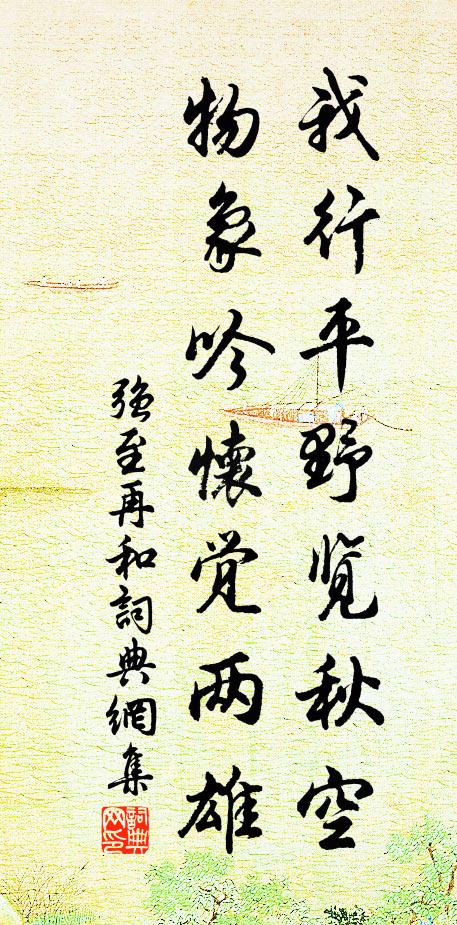 我行平野览秋空
物象吟懷觉两雄
强至再和詞典網集
詞典網印